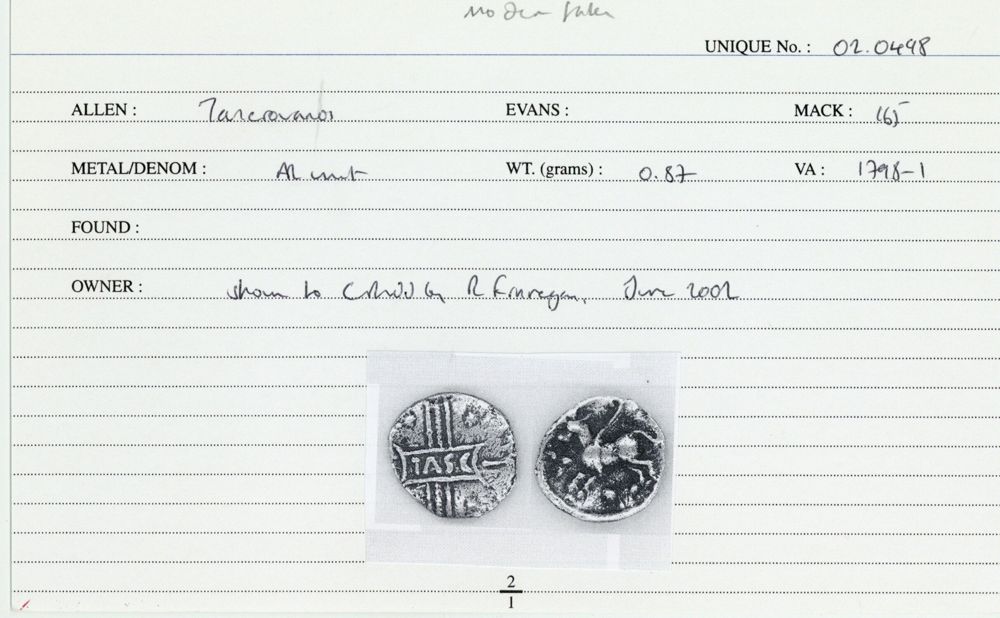 UNIQUE No. : 02.0498
ALLEN : EVANS : MACK : 165
METAL/DENOM : AR unit WT. (grams) : 0.87 VA : 1798-1
FOUND :
OWNER : shown to by R Finnegan, June 2002
TASC
2
1